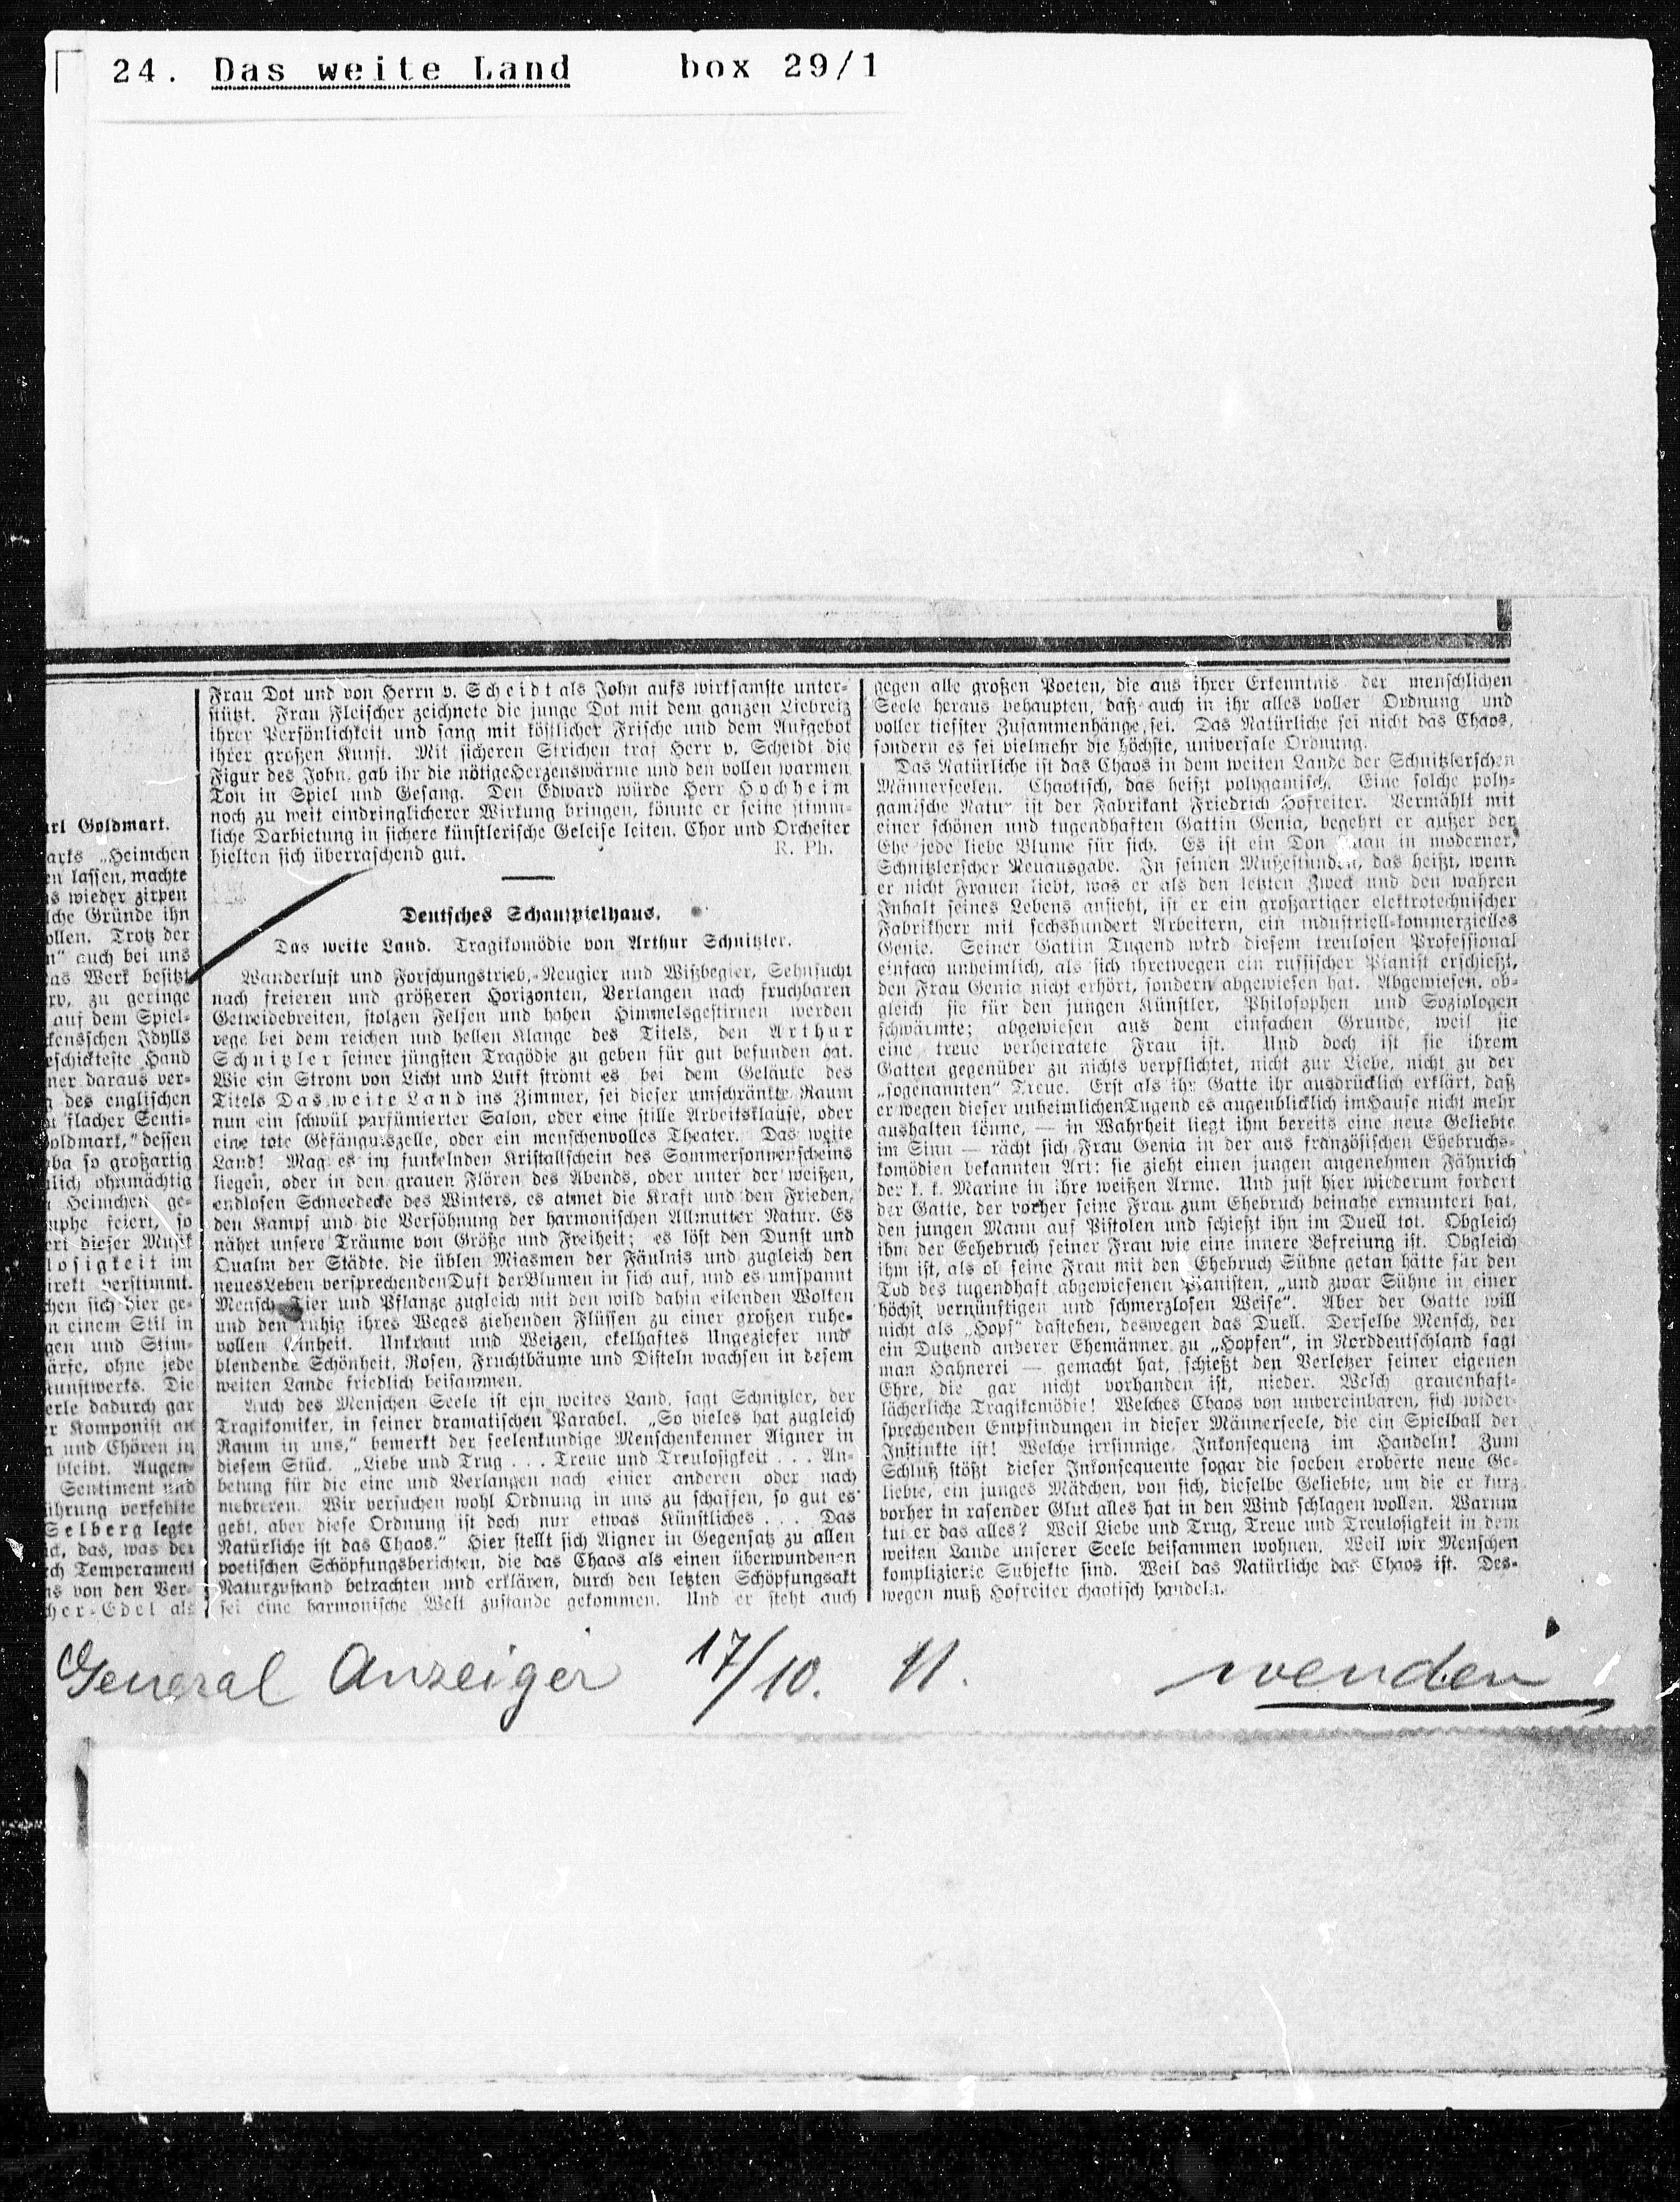 24. Das weite Land box 29/1
arl Goldmark.
arks „Heimchen
en lassen, machte
s wieder zirpen
lche Gründe ihn
ollen. Trotz der
n" auch bei uns
as Werk besitzt
rv, zu geringe
auf dem Spiel-
kensschen Idylls
eschickteste Hand
ner daraus ver-
des englischen
flacher Senti-
oldmark," dessen
ba so großartig
lich ohnmächtig
Heimchen ge-
mphe feiert, so
ert dieser Musik
losigkeit im
irekt verstimmt.
chen sich hier ge-
n einem Stil in
gen und Stim-
ärfe, ohne jede
Kunstwerks. Die
erle dadurch gar
r Komponist an
n und Chören in
bleibt. Augen-
Sentiment und
ührung verfehlte
Selberg legte
d, das, was der
ch Temperament
ns von den Ver-
her-Edel als
Frau Dot und von Herrn v. Scheidt als John aufs wirksamste unter-
stützt. Frau Fleischer zeichnete die junge Dot mit dem ganzen Liebreiz
ihrer Persönlichkeit und sang mit köstlicher Frische und dem Aufgebot
ihrer großen Kunst. Mit sicheren Strichen traf Herr v. Scheidt die
Figur des John, gab ihr die nötige Herzenswärme und den vollen warmen
Ton in Spiel und Gesang. Den Edward würde Herr Hochheim
noch zu weit eindringlicherer Wirkung bringen, könnte er seine stimm-
liche Darbietung in sichere künstlerische Geleise leiten. Chor und Orchester
hielten sich überraschend gut. R. Ph.
Deutsches Schauspielhaus.
Das weite Land. Tragikomödie von Arthur Schnitzler.
Wanderlust und Forschungstrieb, Neugier und Wißbegier, Sehnsucht
nach freieren und größeren Horizonten, Verlangen nach fruchbaren
Getreidebreiten, stolzen Felsen und hohen Himmelsgestirnen werden
rege bei dem reichen und hellen Klange des Titels, den Arthur
Schnitzler seiner jüngsten Tragödie zu geben für gut befunden hat.
Wie ein Strom von Licht und Luft strömt es bei dem Geläute des
Titels Das weite Land ins Zimmer, sei dieser umschränkte Raum
nun ein schwül parfümierter Salon, oder eine stille Arbeitsklause, oder
eine tote Gefängniszelle, oder ein menschenvolles Theater. Das weite
Land! Mag es im funkelnden Kristallschein des Sommersonnenscheins
liegen, oder in den grauen Flören des Abends, oder unter der weißen,
endlosen Schneedecke des Winters, es atmet die Kraft und den Frieden,
den Kampf und die Versöhnung der harmonischen Allmutter Natur. Es
nährt unsere Träume von Größe und Freiheit; es löst den Dunst und
Qualm der Städte, die üblen Miasmen der Fäulnis und zugleich den
neues Leben versprechenden Duft der Blumen in sich auf, und es umspannt
Mensch, Tier und Pflanze zugleich mit den wild dahin eilenden Wolken
und den ruhig ihres Weges ziehenden Flüssen zu einer großen ruhe-
vollen Einheit. Unkraut und Weizen, ekelhaftes Ungeziefer und
blendende Schönheit, Rosen, Fruchtbäume und Disteln wachsen in desem
weiten Lande friedlich beisammen.
Auch des Menschen Seele ist ein weites Land, sagt Schnitzler, der
Tragikomiker, in seiner dramatischen Parabel. „So vieles hat zugleich
Raum in uns," bemerkt der seelenkundige Menschenkenner Aigner in
diesem Stück. „Liebe und Trug . . . Treue und Treulosigkeit . . . An-
betung für die eine und Verlangen nach einer anderen oder nach
mehreren. Wir versuchen wohl Ordnung in uns zu schaffen, so gut es
geht, aber diese Ordnung ist doch nur etwas Künstliches . . . Das
Natürliche ist das Chaos." Hier stellt sich Aigner in Gegensatz zu allen
poetischen Schöpfungsberichten, die das Chaos als einen überwundenen
Naturzustand betrachten und erklären, durch den letzten Schöpfungsakt
sei eine harmonische Welt zustande gekommen. Und er steht auch
gegen alle großen Poeten, die aus ihrer Erkenntnis der menschlichen
Seele heraus behaupten, daß auch in ihr alles voller Ordnung und
voller tiefster Zusammenhänge sei. Das Natürliche sei nicht das Chaos,
sondern es sei vielmehr die höchste, universale Ordnung.
Das Natürliche ist das Chaos in dem weiten Lande der Schnitzlerschen
Männerseelen. Chaotisch, das heißt polygamisch. Eine solche poly-
gamische Natur ist der Fabrikant Friedrich Hofreiter. Vermählt mit
einer schönen und tugendhaften Gattin Genia, begehrt er außer der
Ehe jede liebe Blume für sich. Es ist ein Don Juan in moderner,
Schnitzlerscher Neuausgabe. In seinen Mußestunden, das heißt, wenn
er nicht Frauen liebt, was er als den letzten Zweck und den wahren
Inhalt seines Lebens ansieht, ist er ein großartiger elektrotechnischer
Fabrikherr mit sechshundert Arbeitern, ein industriell-kommerzielles
Genie. Seiner Gattin Tugend wird diesem treulosen Professional
einfach unheimlich, als sich ihretwegen ein russischer Pianist erschießt,
den Frau Genia nicht erhört, sondern abgewiesen hat. Abgewiesen, ob-
gleich sie für den jungen Künstler, Philosophen und Soziologen
schwärmte; abgewiesen aus dem einfachen Grunde, weil sie
eine treue verheiratete Frau ist. Und doch ist sie ihrem
Gatten gegenüber zu nichts verpflichtet, nicht zur Liebe, nicht zu der
„sogenannten" Treue. Erst als ihr Gatte ihr ausdrücklich erklärt, daß
er wegen dieser unheimlichen Tugend es augenblicklich im Hause nicht mehr
aushalten könne, — in Wahrheit liegt ihm bereits eine neue Geliebte
im Sinn — rächt sich Frau Genia in der aus französischen Ehebruchs-
komödien bekannten Art: sie zieht einen jungen angenehmen Fähnrich
der k. k. Marine in ihre weißen Arme. Und just hier wiederum fordert
der Gatte, der vorher seine Frau zum Ehebruch beinahe ermuntert hat,
den jungen Mann auf Pistolen und schießt ihn im Duell tot. Obgleich
ihm der Echebruch seiner Frau wie eine innere Befreiung ist. Obgleich
ihm ist, als ob seine Frau mit dem Ehebruch Sühne getan hätte für den
Tod des tugendhaft abgewiesenen Pianisten, „und zwar Sühne in einer
höchst vernünftigen und schmerzlosen Weise". Aber der Gatte will
nicht als „Hopf" dastehen, deswegen das Duell. Derselbe Mensch, der
ein Dutzend anderer Ehemänner zu „Hopfen", in Norddeutschland sagt
man Hahnerei — gemacht hat, schießt den Verletzer seiner eigenen
Ehre, die gar nicht vorhanden ist, nieder. Welch grauenhaft-
lächerliche Tragikomödie! Welches Chaos von unvereinbaren, sich wider-
sprechenden Empfindungen in dieser Männerseele, die ein Spielball der
Instinkte ist! Welche irrsinnige Inkonsequenz im Handeln! Zum
Schluß stößt dieser Inkonsequente sogar die soeben eroberte neue Ge-
liebte, ein junges Mädchen, von sich, dieselbe Geliebte, um die er kurz
vorher in rasender Glut alles hat in den Wind schlagen wollen. Warum
tut er das alles? Weil Liebe und Trug, Treue und Treulosigkeit in dem
weiten Lande unserer Seele beisammen wohnen. Weil wir Menschen
komplizierte Subjekte sind. Weil das Natürliche das Chaos ist. Des-
wegen muß Hofreiter chaotisch handeln.
General Anzeiger 17/10. 11. wenden